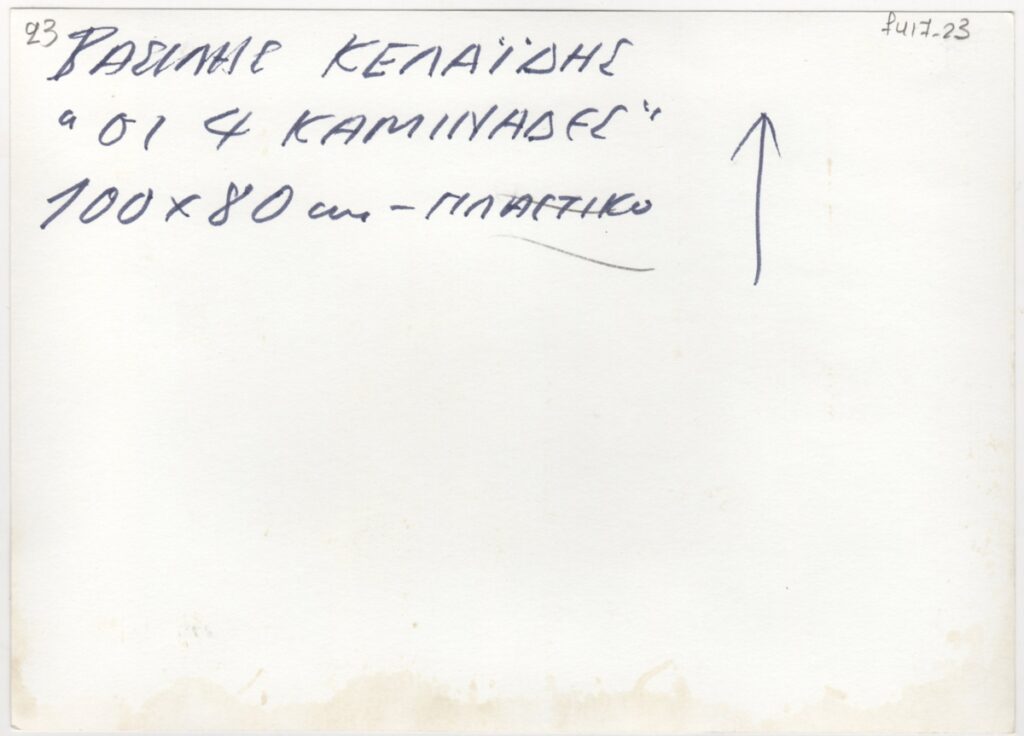 23
f417-23
ΒΑΣΙΛΗΣ ΚΕΛΑΪΔΗΣ
"ΟΙ 4 ΚΑΜΙΝΑΔΕΣ"
100x80 cm - ΠΛΑΣΤΙΚΟ